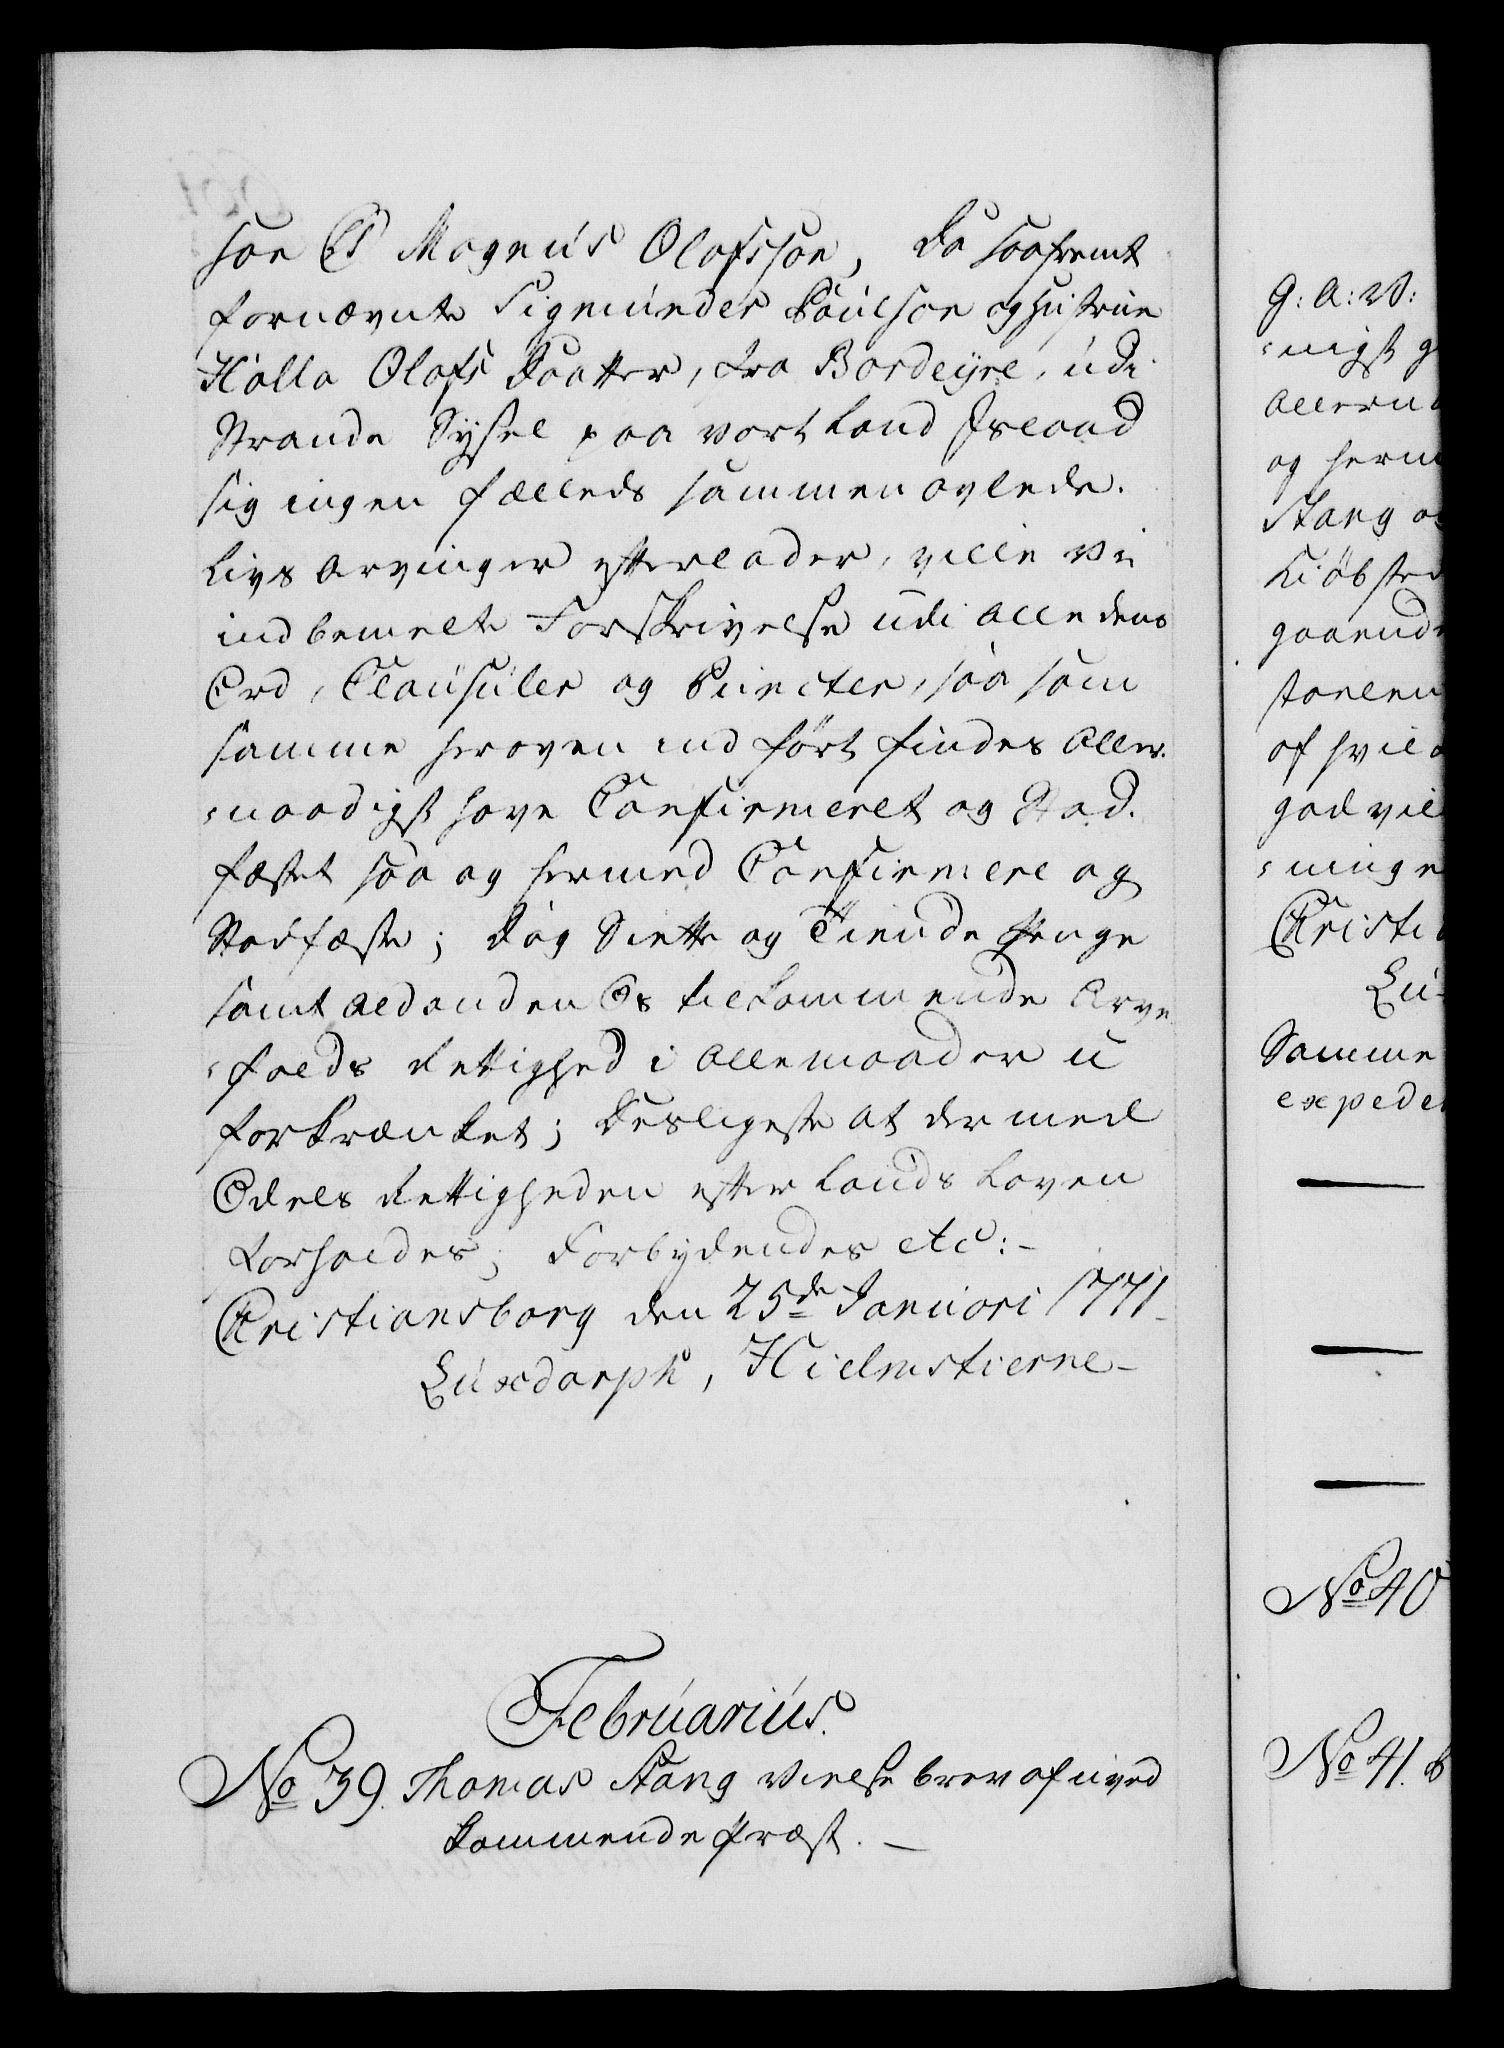 søn Magnus Olafsøn, da saafremt
fornævnte Sigmunder Poulsøn og Hustrue
Halla Olafs Daatter, fra Bordeyre, udi
Strande Sysel paa vort Land Island
sig ingen fælleds sammenavlede
Livs Arvinger efterlader, ville Vi
indbemelte Forskrivelse udi alle dens
Ord, Clausuler og Puncter, saa som
samme heroven indført findes Aller-
=naadigst have Confirmeret og Stad-
fæstet saa og hermed Confirmere og
Stadfæste; dog Siette og Tiende Penge
samt ald anden Os tilkommende Arve
=falds Rettighed i alle maader u
forkrænket; Desligeste at der med
Odels Rettigheden efter Lands Loven
forholdes; Forbydendes etc:-
Christiansborg den 25de Januari 1771-
Luxdorph, Hielmstierne-
Februarius.
No 39. Thomas Stang Vielse brev af uved
kommende Præst. -
G: A: V:
=nigst g
Allern
og herm
Stang o
Kiøbsted
gaaende
stolen
of hvil
god vil
=ning
Christi
Lu-
Samme
expeder
No 40
No 41.